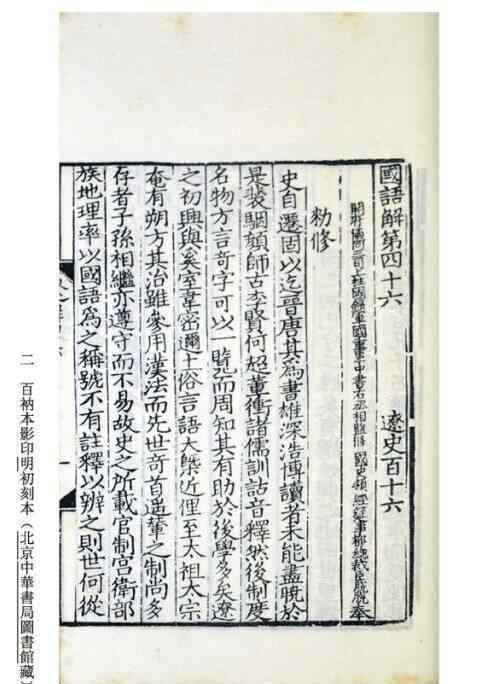 國語解第四十六 遼史百十六
開府儀同三司上柱國錄軍國重事中書右丞相監修 國史領 經筵事都總裁臣脫脫奉
勑修
史自遷固以迄晉唐其爲書雄深浩博讀者未能盡曉於
是裴駰顔師古李賢何超董衝諸儒訓詁音釋然後制度
名物方言奇字可以一覧而周知其有助於後學多矣遼
之初興與奚室韋密邇土俗言語大槩近俚至太祖太宗
奄有朔方其治雖參用漢法而先世奇首遥輦之制尚多
存者子孫相繼亦遵守而不易故史之所載官制宫衛部
族地理率以國語爲之稱號不有註釋以辨之則世何從
二 百衲本影印明初刻本（北京中華書局圖書館藏）